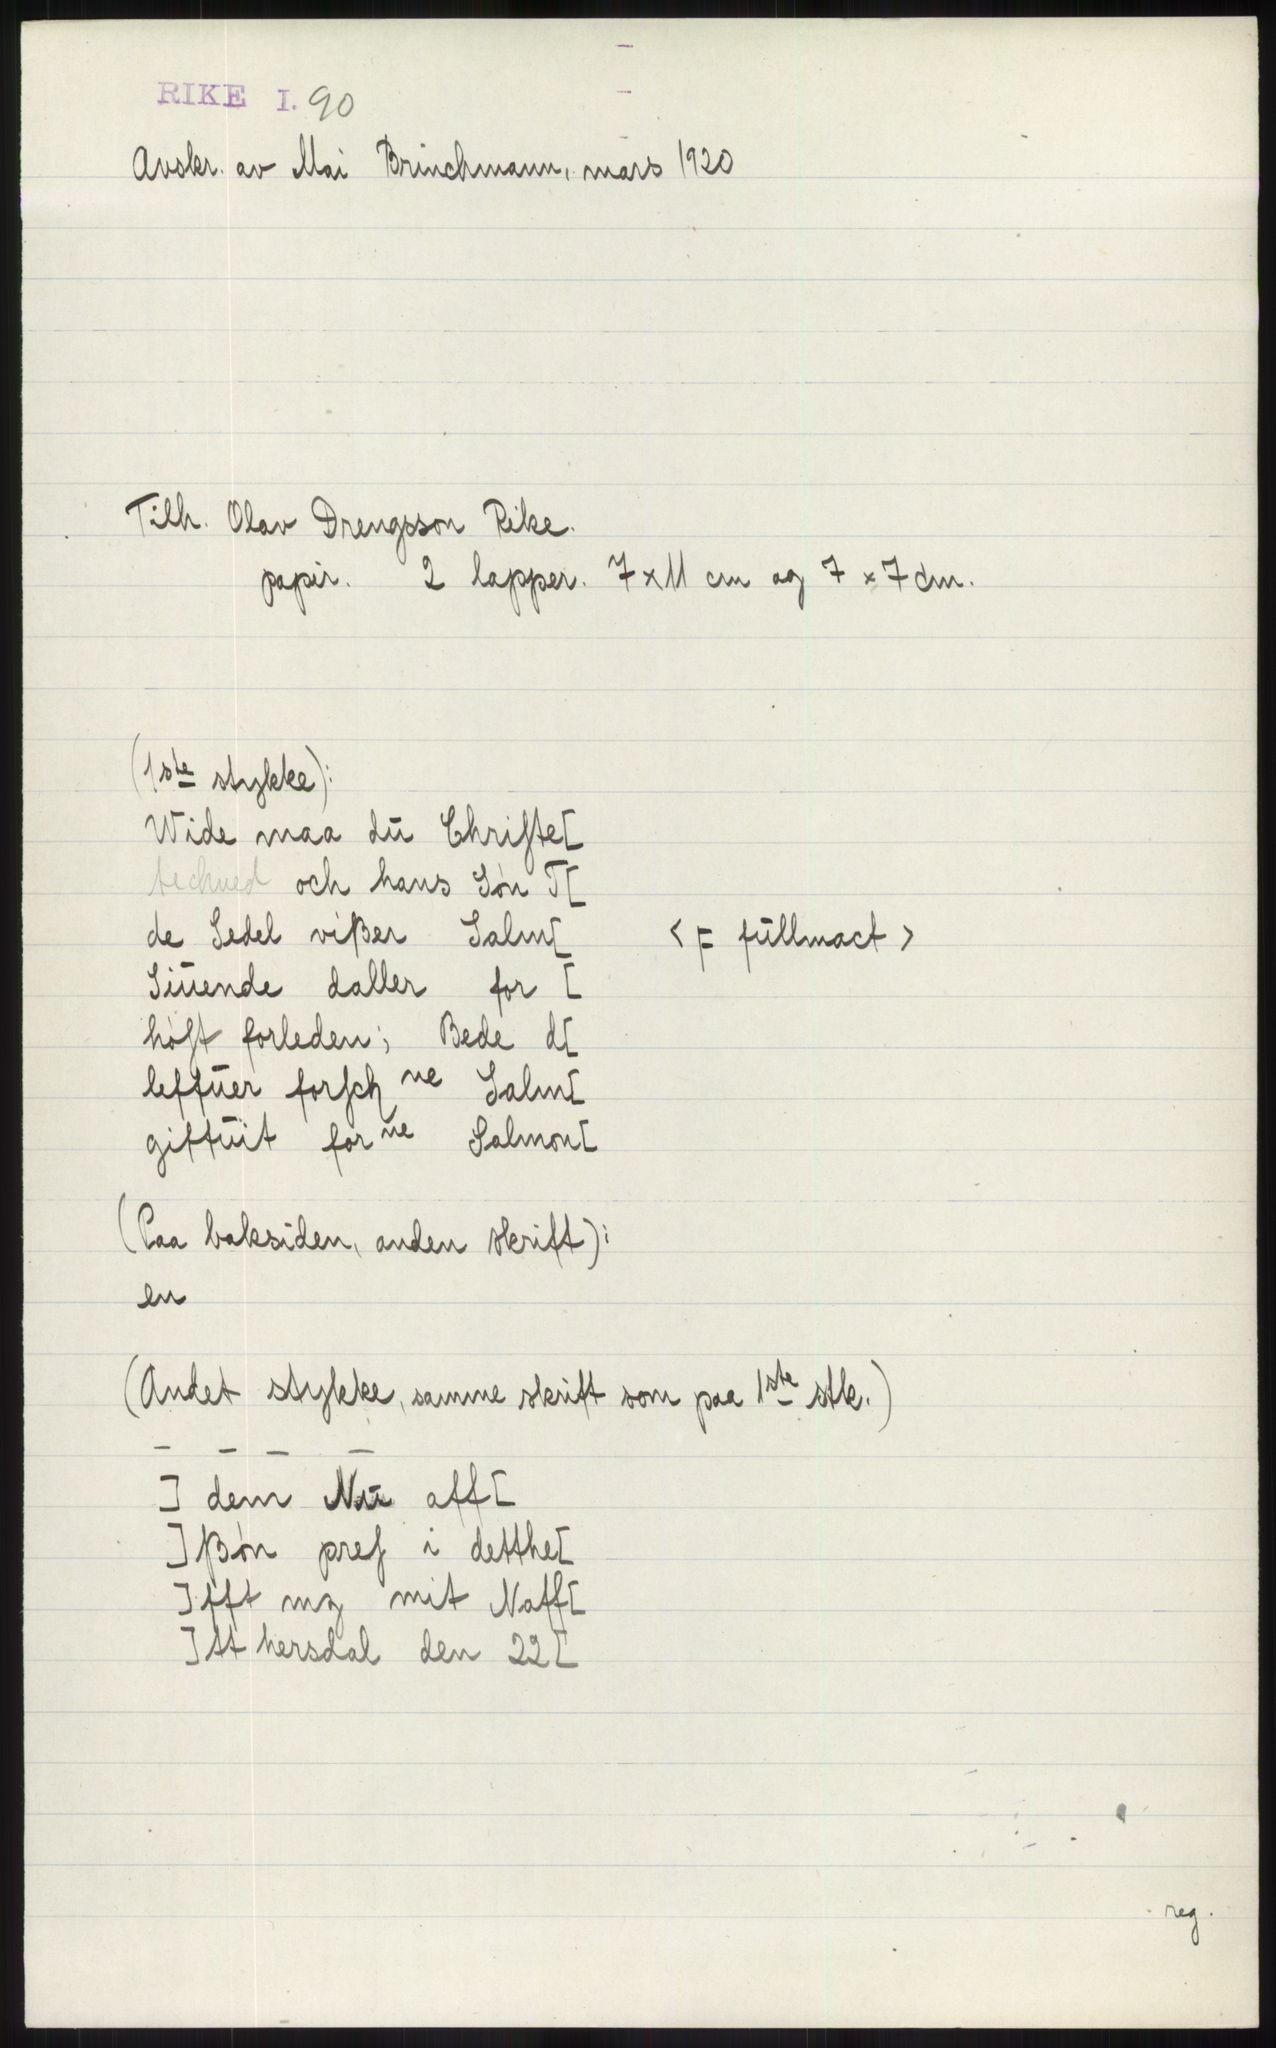 RIKE I. 90
Avskr. av Mai Brinchmann, mars 1920
Tilh. Olav Drengsson Rike.
papir. 2 lapper. 7 x 11 cm og 7 x 7 cm.
(1ste stykke):
Wide maa dŭ Chriſte[
techned och hans Søn T[
de Sedel vißer Salm[ < ɔ: fŭllmact >
Siŭende daller for [
høſt forleden; Bede d[
leffŭer forſch ne Salm[
giffŭit for ne Salmon[
(Paa baksiden, anden skrift):
en
(Andet stykke, samme skrift som paa 1ste stk.)
– – – –
] dem Nŭ aff[
]ßøn preſ i detthe[
]fft mz mit Naff[
]tt hersdal den 22[
reg.